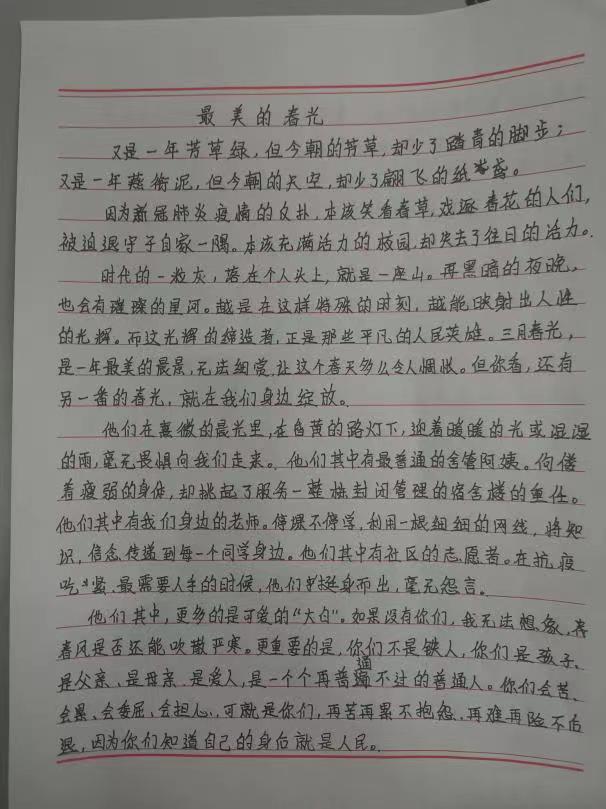 最美的春光
又是一年芳草绿，但今朝的芳草，却少了踏青的脚步；
又是一年燕衔泥，但今朝的天空，却少了翩飞的纸鸢。
因为新冠肺炎疫情的反扑，本该笑看春草，戏逐春花的人们，
被迫退守于自家一隅。本该充满活力的校园，却失去了往日的活力。
时代的一粒灰，落在个人头上，就是一座山。再黑暗的夜晚，
也会有璀璨的星河。越是在这样特殊的时刻，越能映射出人性
的光辉。而这光辉的缔造者，正是那些平凡的人民英雄。三月春光，
是一年最美的晨景，无法细赏，让这个春天多么令人惆怅。但你看，还有
另一番的春光，就在我们身边绽放。
他们在熹微的晨光里，在昏黄的路灯下，迎着暖暖的光或湿湿
的雨，毫无畏惧向我们走来。他们其中有最普通的舍管阿姨。佝偻
着瘦弱的身体，却挑起了服务一整栋封闭管理的宿舍楼的重任。
他们其中有我们身边的老师。停课不停学，利用一根细细的网线，将知
识，信念传递到每一个同学身边。他们其中有社区的志愿者。在抗疫
吃紧、最需要人手的时候，他们挺身而出，毫无怨言。
他们其中，更多的是可爱的“大白”。如果没有你们，我无法想象，
春风是否还能吹散严寒。更重要的是，你们不是铁人，你们是孩子、
是父亲、是母亲、是爱人，是一个个再普通不过的普通人。你们会苦、
会累、会委屈、会担心，可就是你们，再苦再累不抱怨、再难再险不后
退，因为你们知道自己的身后就是人民。